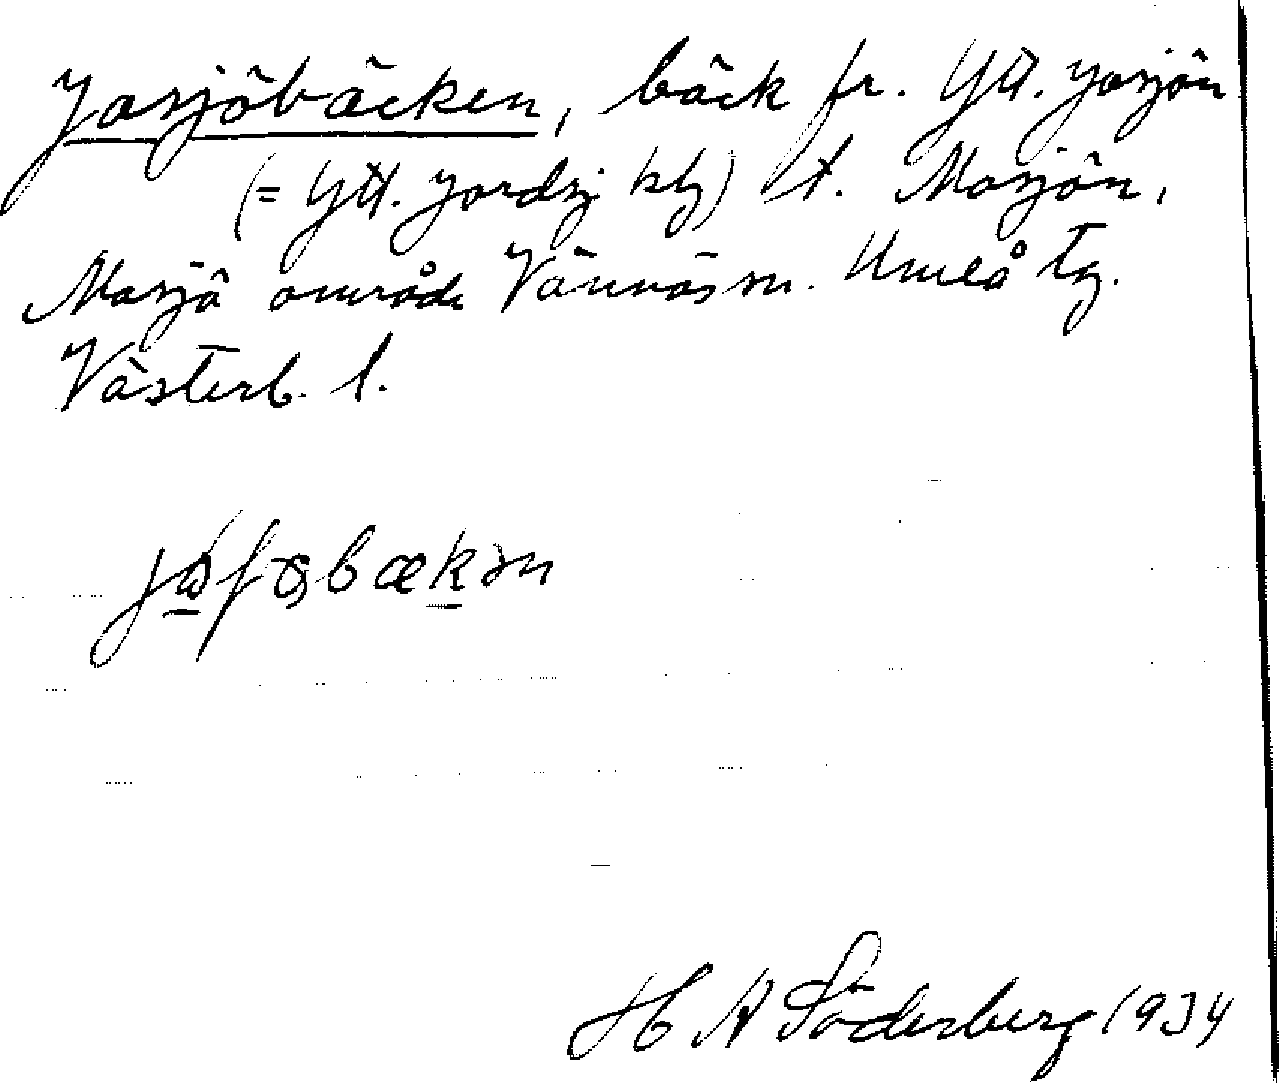 Jorsjöbäcken, bäck fr. Ytt. Jorsjön
(= Ytt. Jordsj kb) t. Mosjön,
Mosjö område Vännäs sn. Umeå tg.
Västerb. l.
H A Söderberg 1934